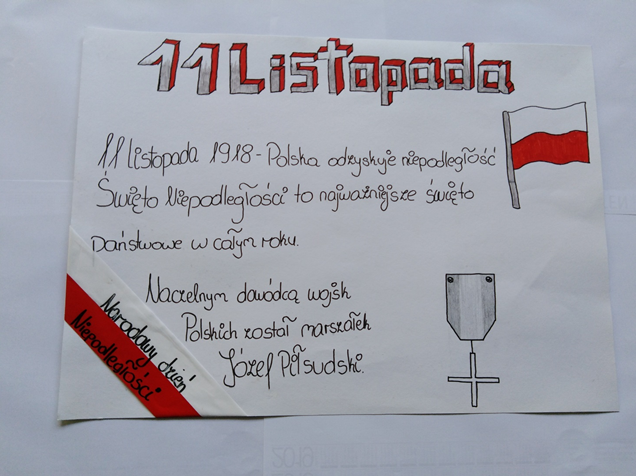 11 Listopada
11 Listopada 1918 - Polska odzyskuje niepodległość
Święto Niepodległości to najważniejsze święto
Państwowe w całym roku.
Naczelnym dawódcą wojsk
Polskich został marszałek
Józef Piłsudski.
Narodowy dzień
Niepodległości